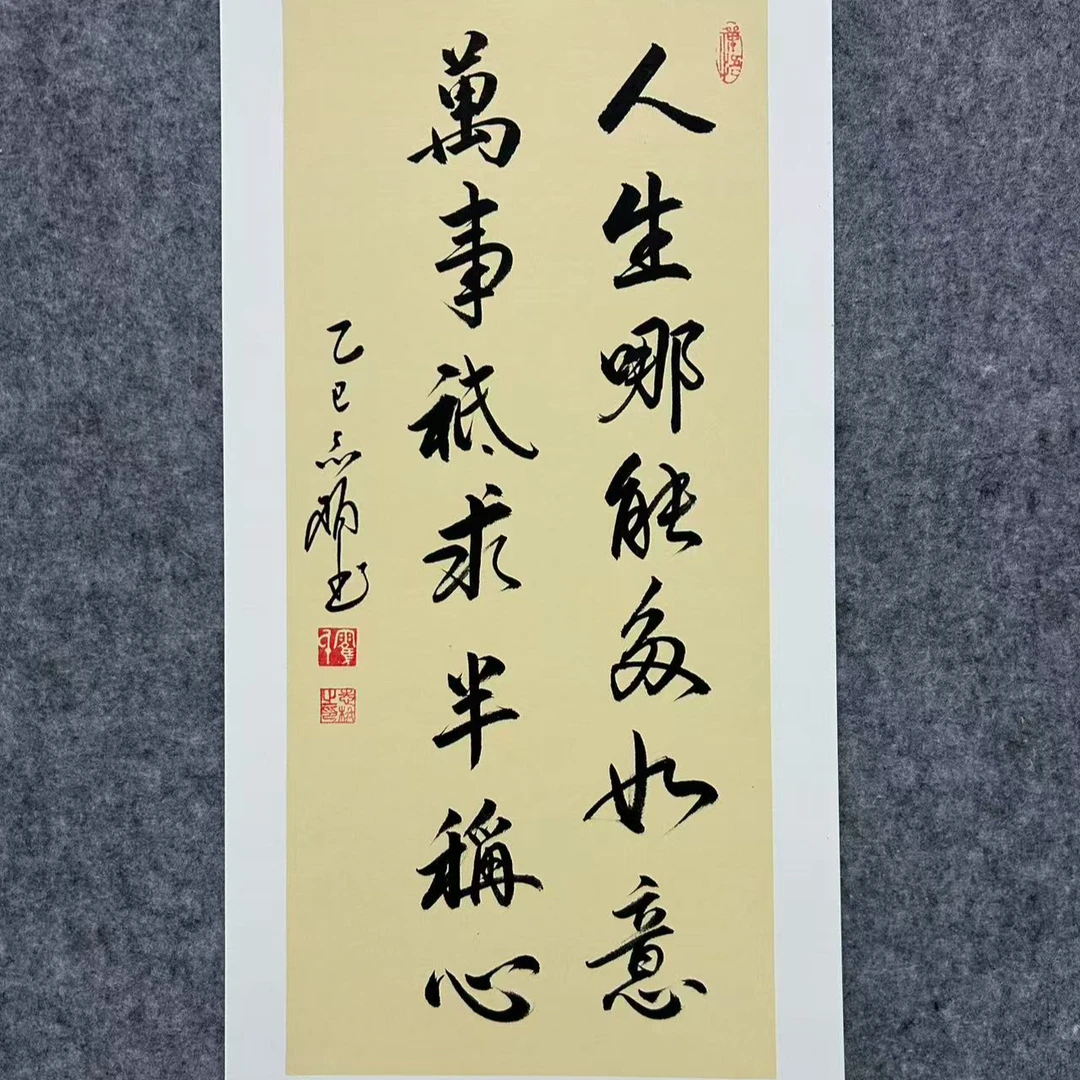 人生哪能多如意
萬事祗求半稱心
乙巳志書